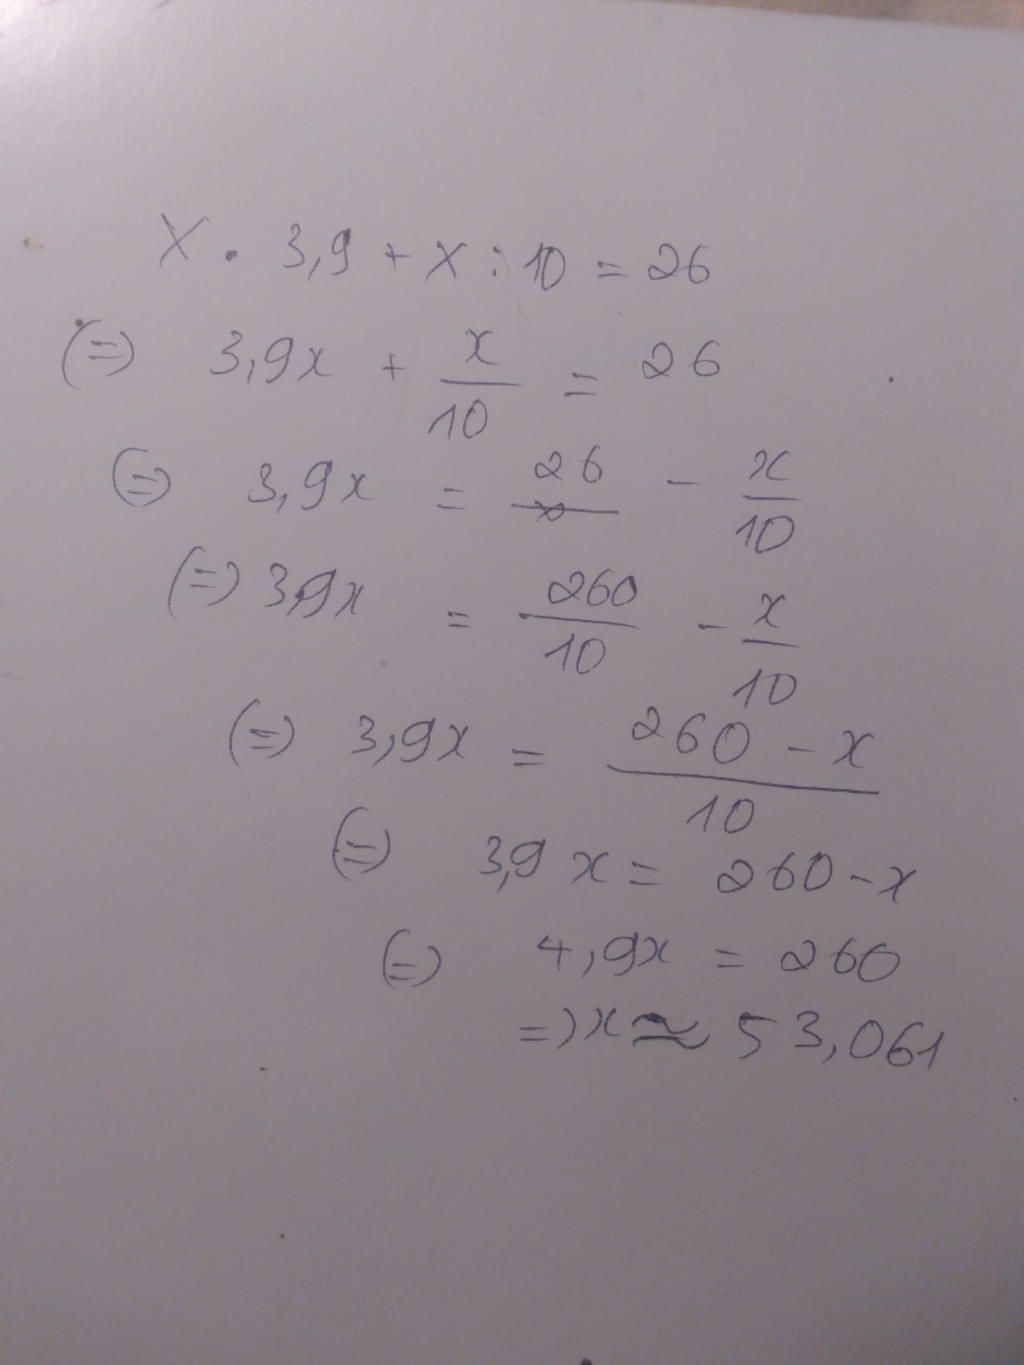 X . 3,9 + x : 10 = 26
(=) 3,9x + x/10 = 26
(=) 3,9x = 26 - x/10
(=) 3,9x = 260/10 - x/10
(=) 3,9x = (260 - x)/10
(=) 3,9 x = 260 - x
(=) 4,9x = 260
=) x ≈ 53,061